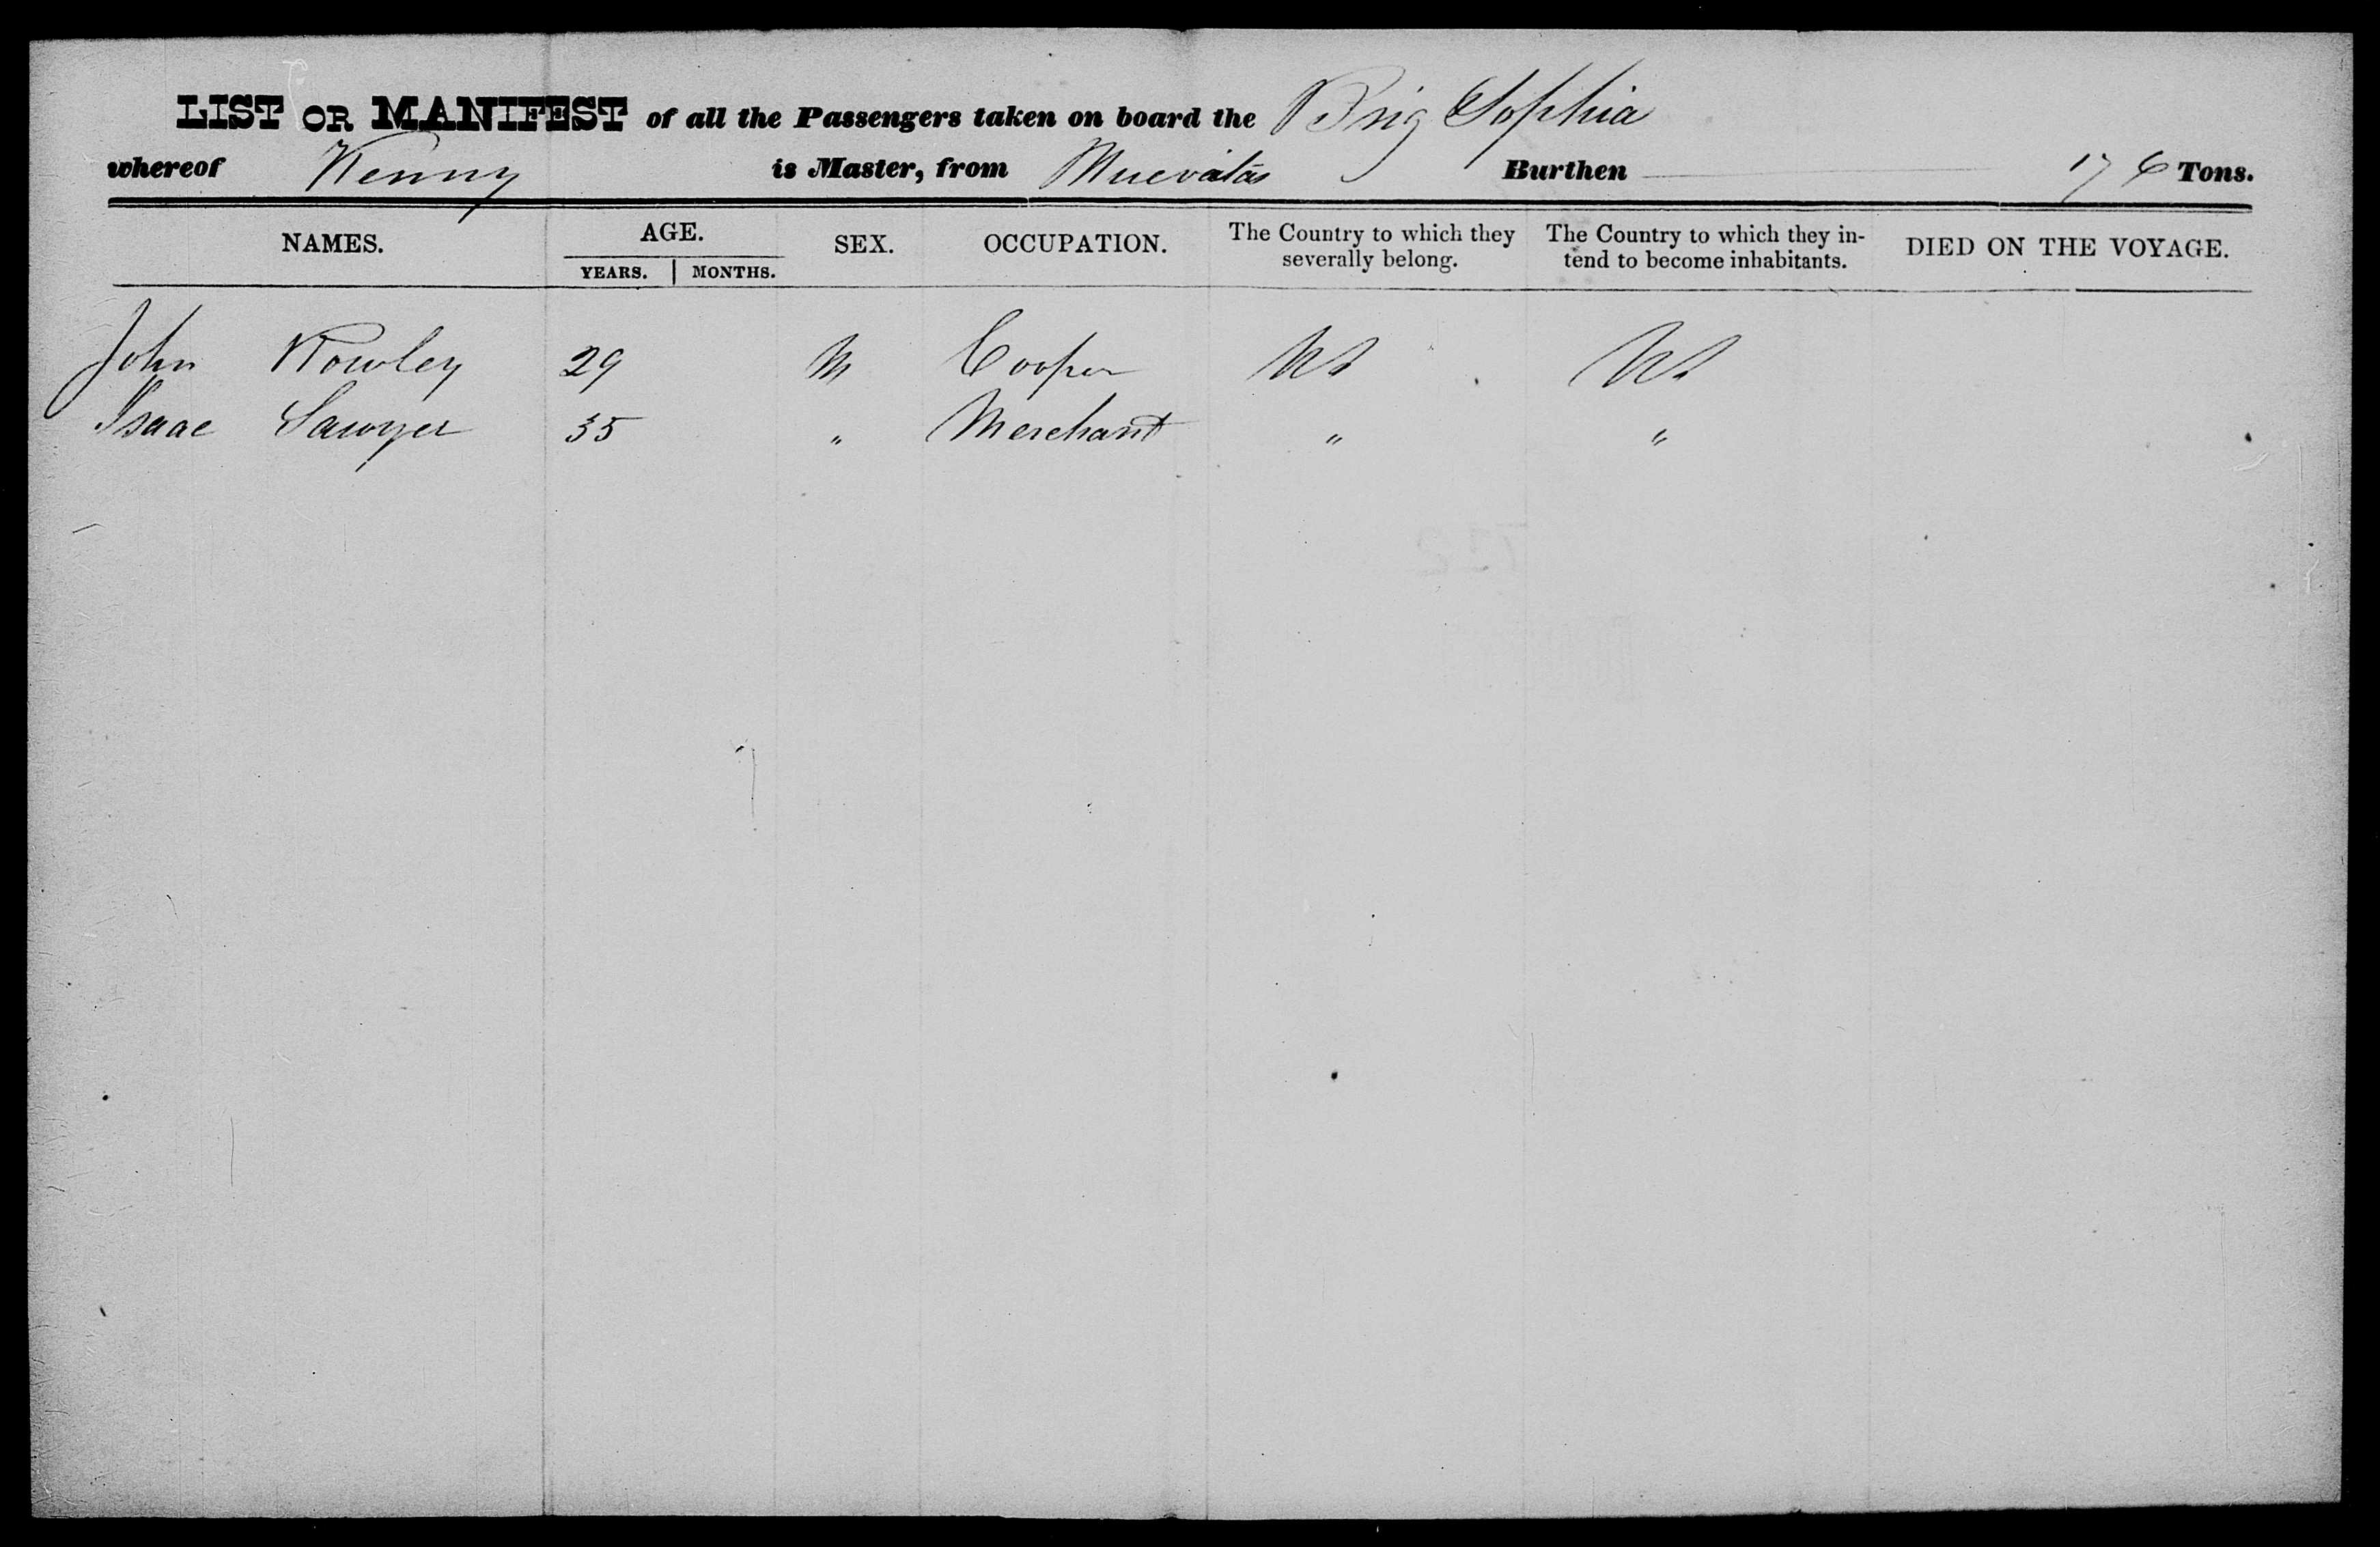 LIST OR MANIFEST of all the Passengers taken on board the Brig Sophia
whereof Kenny is Master, from Nuevitas Burthen 176 Tons.
NAMES. AGE. SEX. OCCUPATION. The Country to which they severally belong. The Country to which they in-tend to become inhabitants. DIED ON THE VOYAGE.
YEARS. MONTHS.
John Rowley 29 M Cooper US US
Isaac Sawyer 35 " Merchant " "